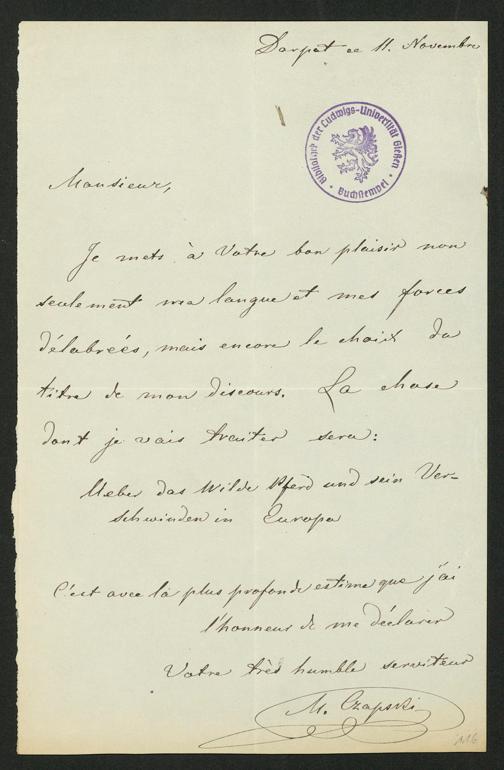 Dorpat ce 11. Novembre
Bibliothek der Ludwigs-Universität Gießen
Buchstempel
Monsieur,
Je mets à Votre bon plaisir non
seulement ma langue et mes forces
délabreés, mais encore le choix du
titre de mon discours. La chose
dont je vais traiter sera:
Ueber das Wilde Pferd und sein Ver-
schwinden in Europa
C'est avec la plus profonde estime que j'ai
l'honneur de me déclarer
Votre très humble serviteur
M. Czapski